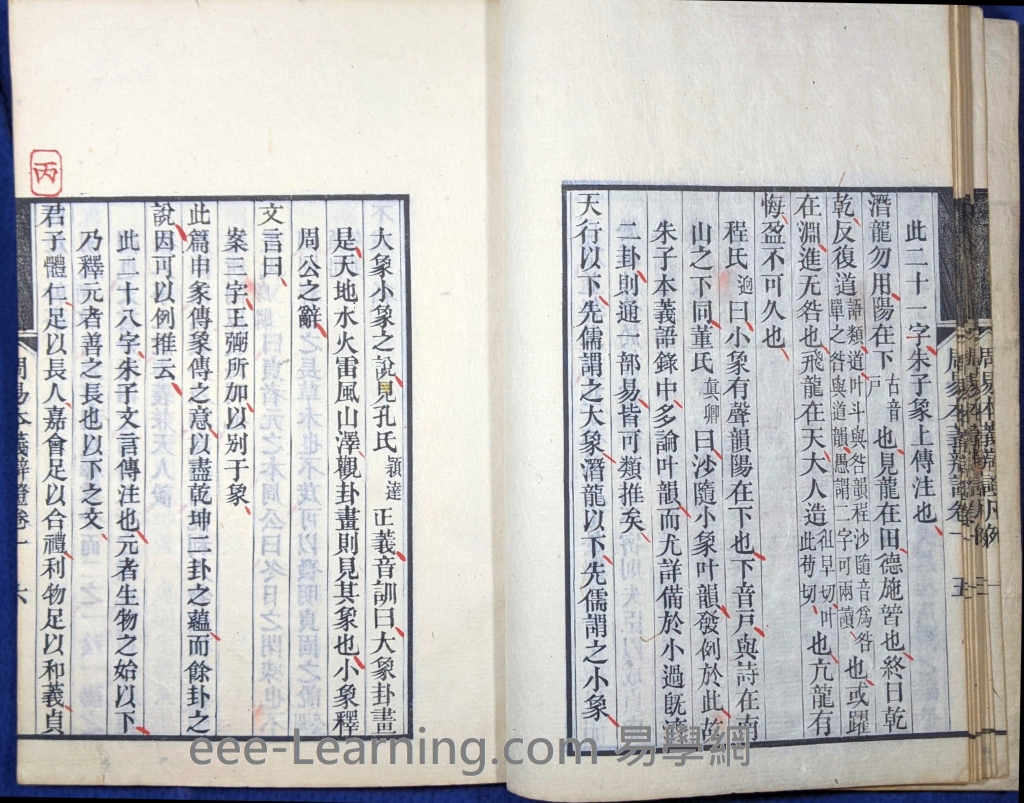 此二十一字朱子彖上傳注也
潛龍勿用陽在下古音戶也見龍在田德施普也終日乾
乾反復道語類道叶斗與咎韻程沙隨音為咎單之咎與道韻愚謂二字可兩讀也或躍
在淵進无咎也飛龍在天大人造徂早切叶此苟切也亢龍有
悔盈不可久也
程氏迥曰小象有聲韻陽在下也下音戶與詩在南
山之下同董氏真卿曰沙隨小象叶韻發例於此故
朱子本義語錄中多論叶韻而尤詳備於小過旣濟
二卦則通一部易皆可類推矣
天行以下先儒謂之大象潛龍以下先儒謂之小象
周易本義辨證卷一
五
大象小象之說見孔氏穎達正義音訓曰大象卦畫
是天地水火雷風山澤觀卦畫則見其象也小象釋
周公之辭
文言曰
案三字王弼所加以别于彖
此篇申彖傳象傳之意以盡乾坤二卦之蘊而餘卦之
說因可以例推云
此二十八字朱子文言傳注也元者生物之始以下
乃釋元者善之長也以下之文
君子體仁足以長人嘉會足以合禮利物足以和義貞
周易本義辨證卷一
六
丙
eee-Learning.com 易學網